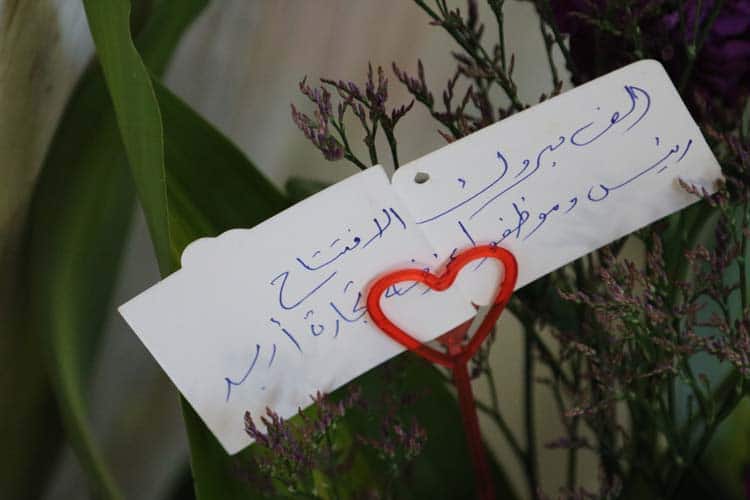 الف مبروك الافتتاح
رئيس وموظفوا غرفة تجارة أربد